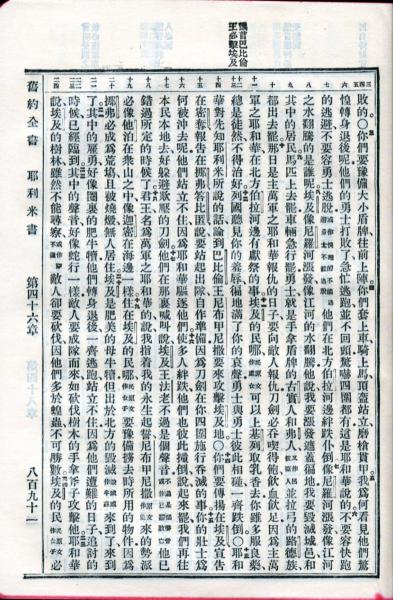 預言巴比倫
王必擊埃及
敗的○你們要豫備大小盾牌往前上陣你們套上車騎上馬頂盔站立磨槍貫甲我爲何看見他們驚
惶轉身退後呢他們的勇士打敗了急忙逃跑並不回頭驚嚇四圍都有這是耶和華說的不要容快跑
的逃避不要容勇士逃脫他們在北方伯拉河邊絆跌仆倒像尼羅河漲發像江河
之水翻騰的是誰呢埃及像尼羅河漲發像江河的水翻騰他說我要漲發遮蓋徧地我要毀滅城邑和
其中的居民馬匹上去罷車輛急行罷勇士就是手拿盾牌的古實人和弗人並拉弓的路德族
都出去罷那日是主萬軍之耶和華報仇的日子要向敵人報仇刀劍必吞喫得飽飲血飲足因爲主萬
軍之耶和華在北方伯拉河邊有獻祭的事埃及的民哪可以上基列取乳香去你雖多服良藥
總是徒然不得治好列國聽見你的羞辱徧地滿了你的哀聲勇士與勇士彼此相碰一齊跌倒○耶和
華對先知耶利米所說的話論到巴比倫王尼布甲尼撒要來攻擊埃及地○你們要傳揚在埃及宣告
在密奪報告在挪弗答比匿說要站起出隊自作準備因爲刀劍在你四圍施行吞滅的事你的壯士爲
何被沖去呢他們站立不住因爲耶和華驅逐他們使多人絆跌他們也彼此撞倒說起來罷我們再往
本民本地去好躲避欺壓的刀劍他們在那裏喊叫說埃及王法老不過是個聲音他已
錯過所定的時候了君王名爲萬軍之耶和華的說我指着我的永生起誓尼布甲尼撒來的勢派
必像他泊在衆山之中像迦密在海邊一樣住在埃及的民哪要豫備擄去時所用的物件因爲
挪弗必成爲荒塲且被燒燬無人居住埃及是肥美的母牛犢但出於北方的毀滅來到了來到
了其中的雇勇好像圈裏的肥牛犢他們轉身退後一齊逃跑站立不住因爲他們遭難的日子追討的
時候已經臨到其中的聲音好像蛇行一樣敵人要成隊而來如砍伐樹木的手拿斧子攻擊他耶和華
說埃及的樹林雖然不能尋察敵人卻要砍伐因他們多於蝗蟲不可勝數埃及的民必
舊約全書 耶利米書 第四十六章 八百九十一